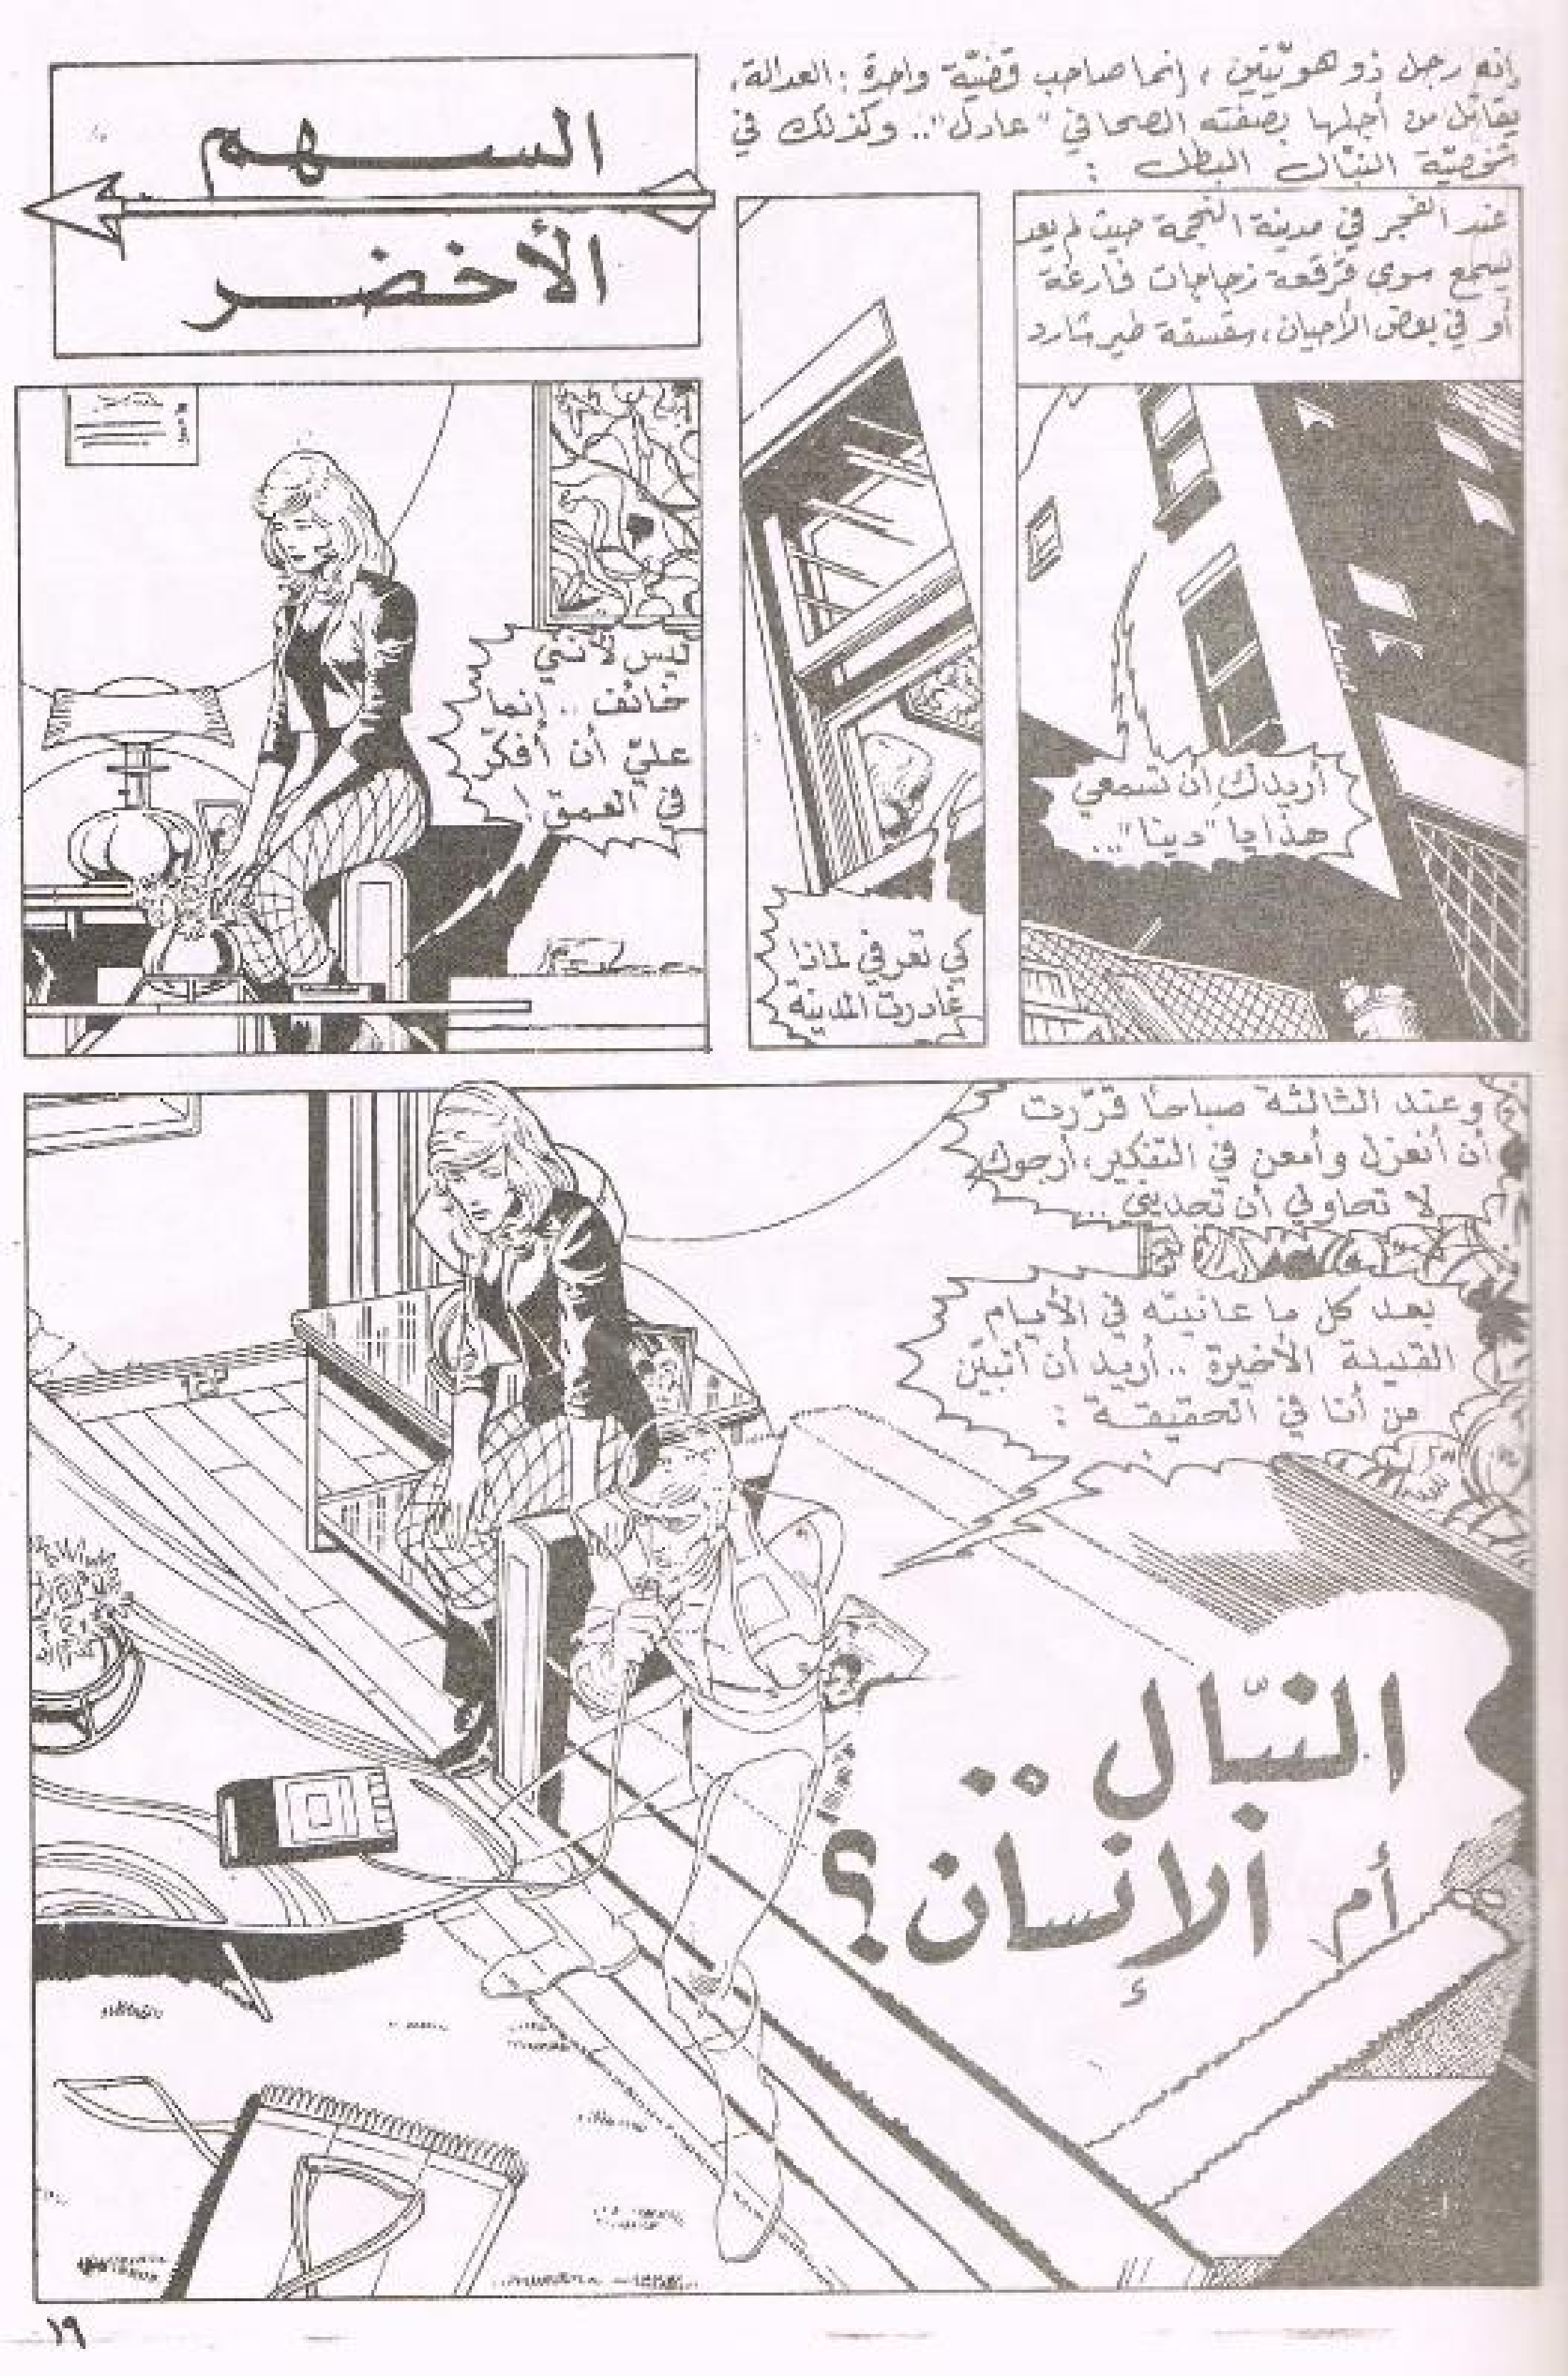 إنه رجل ذو هويّتين، إنما صاحب قضيّة واحدة: العدالة،
يقاتل من أجلها بصفته الصحافي "عادل".. وكذلك في
شخصيّة النبّال البطل :
السهم
الأخضر
عند الفجر في مدينة النجمة حيث لم يعد
يسمع سوى قرقعة زجاجات فارغة
أو في بعض الأحيان، سقسقة طير شارد
أريدك أن تسمعي
هذا يا "دينا"...
كي تعرفي لماذا
غادرت المدينة
ليس لأنني
خائف .. إنما
عليّ أن أفكّر
في العمق!
وعند الثالثة صباحا قرّرت
أن أنعزل وأمعن في التفكير، أرجوك
لا تحاولي أن تجديني...
بعد كل ما عانيته في الأيام
القليلة الأخيرة .. أريد أن أتبيّن
من أنا في الحقيقة :
النبّال ..
أم الإنسان؟
١٩